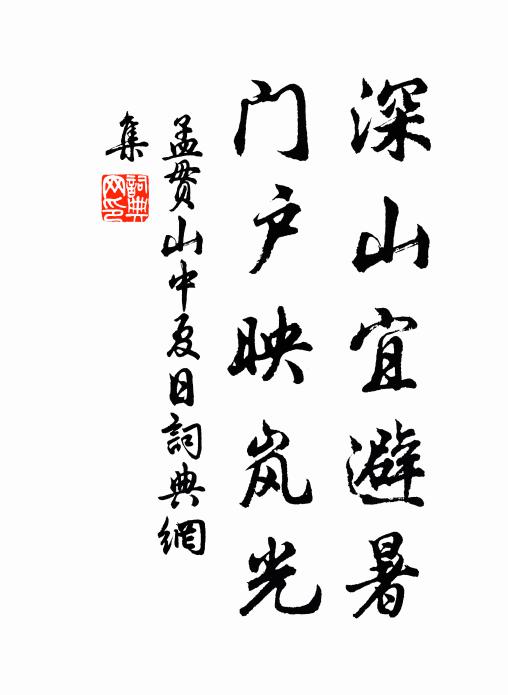 深山宜避暑
门户映岚光
孟贯山中夏日詞典網
集
詞典
网印